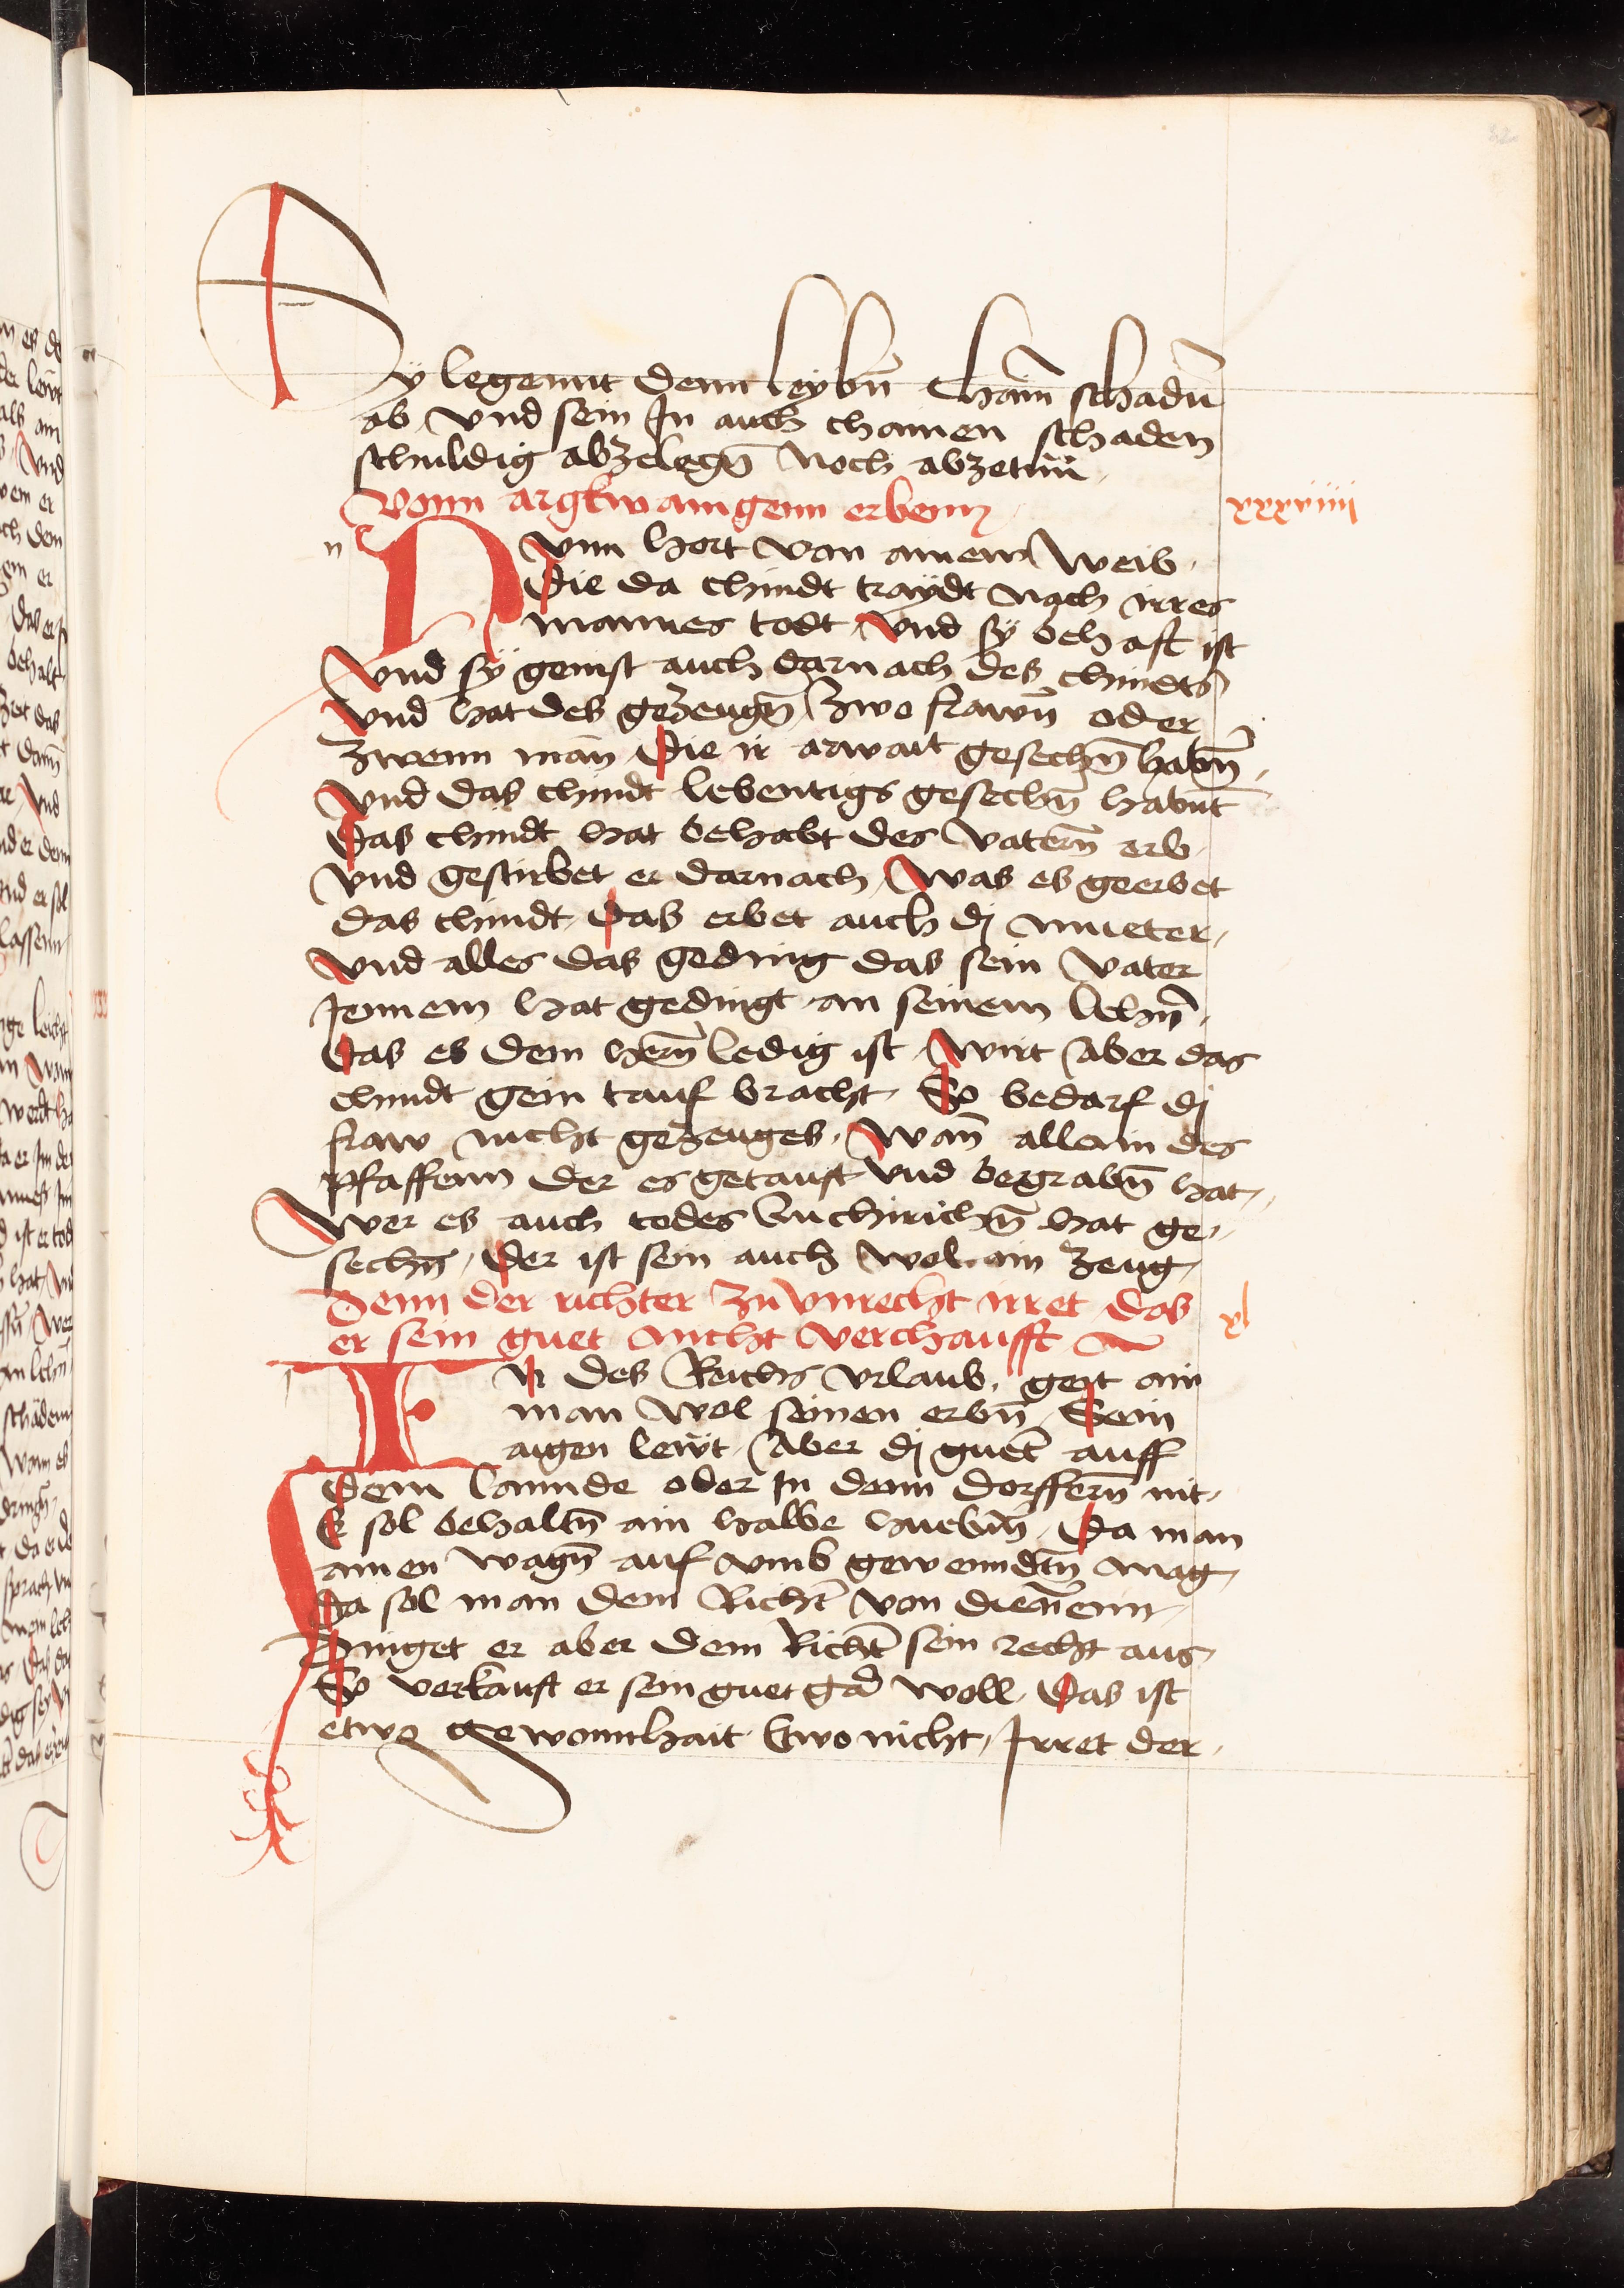 Sy legennt denn leybn̄ chain̄ schadn̄
ab vnd sein In auch chainen schaden
schuldig abzelegn̄ noch abzetūn
vonn argkwanigenn erbenn
xxxviiii
n
Nvnn hort von ainem Weib
die da chindt traydt nach irres
mannes todt vnd sÿ behaft ist
vnd sÿ genist auch darnach des chindts
vnd hat des gezeugn̄ zwo frawn̄ oder
zwenn man die ir arwait gesechn̄ habn̄
vnd das chindt lebentigs gesechn̄ habnt
Das chindt hat behabt des vatern̄ erb
vnd gestirbet er darnach was es geerbet
das chindt das erbet auch dj mueter
vnd alles das geding das sein vater
Jennem hat gedingt an seinem lehn̄
Das es dem hern̄ ledig ist wirt aber das
chindt gein tauf bracht So bedarf dj
fraw nicht gezeuges wan̄ allain des
pfaffenn der es getauft vnd begrabn̄ hat
wer es auch todes zu chirichn̄ hat ge
sechn̄ der ist sein auch wol ain zeug
Denn der richter zu vnrecht irret das
er sein guet nicht verchaufft
xl
In des Reichs vrlaub geit ain
man wol seinen erbn̄ Sein
aigen lewt aber dj guet auff
dem lannde oder In denn dorffern̄ nit
Er sol behaltn̄ ain halbe huebm̄ Da man
ainen wagn̄ auf vmb gewenndtn̄ mag
Da sol man dem Richt̄ von dien̄enn
Dinget er aber dem Richt̄ sein recht aus
So verkauft er sein guet gar woll Das ist
etwo gewonnhait Etwo nicht Irret der